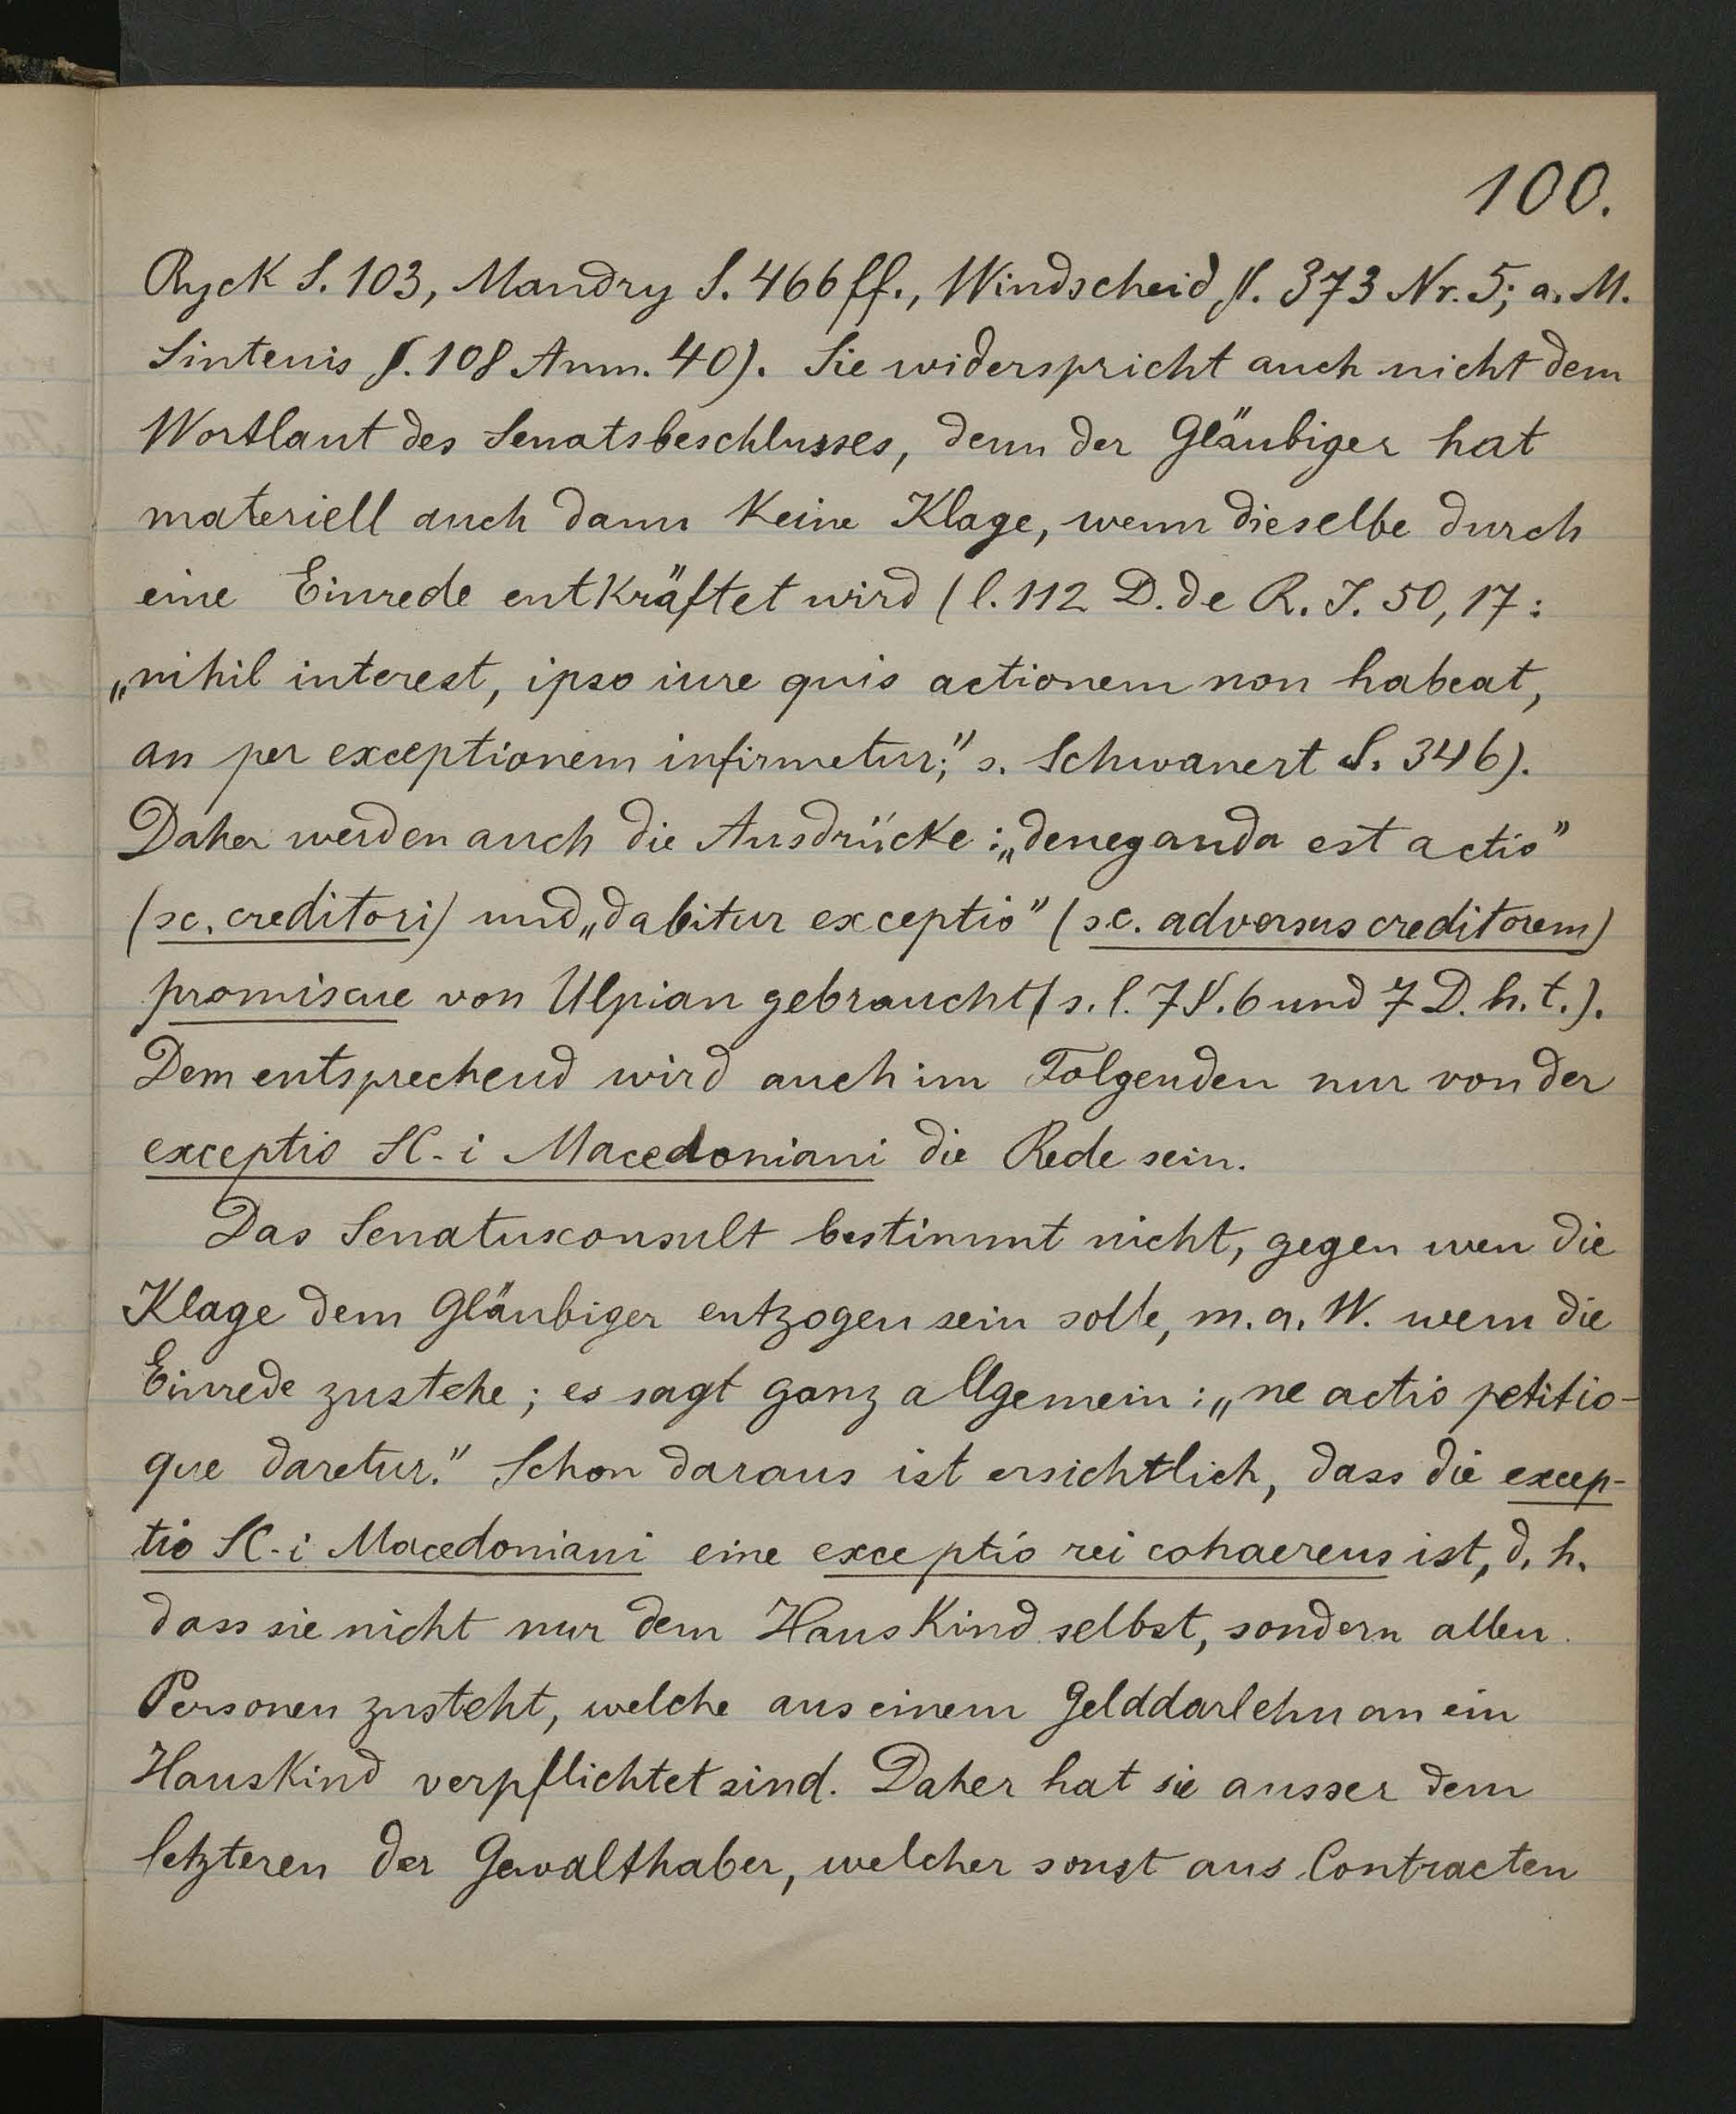 100.
Ryck S. 103, Mandry S. 466 ff., Windscheid §. 373 Nr. 5; a. M.
Sintenis §. 108 Anm. 40). Sie widerspricht auch nicht dem
Wortlaut des Senatsbeschlusses, denn der Gläubiger hat
materiell auch dann keine Klage, wenn dieselbe durch
eine Einrede entkräftet wird (l. 112 D. de R. J. 50, 17:
„nihil interest, ipso iure quis actionem non habeat,
an per exceptionem infirmetur;" s. Schwanert S. 346).
Daher werden auch die Ausdrücke: „deneganda est actio"
(sc. creditori) und „dabitur exceptio" (sc. adversus creditorem)
promiscue von Ulpian gebraucht (s. l. 7 §. 6 und 7 D. h. t.).
Dem entsprechend wird auch im Folgenden nur von der
exceptio SC-i Macedoniani die Rede sein.
Das Senatusconsult bestimmt nicht, gegen wen die
Klage dem Gläubiger entzogen sein solle, m. a. W. wem die
Einrede zustehe; es sagt ganz allgemein: „ne actio petitio-
que daretur." Schon daraus ist ersichtlich, dass die excep-
tio SC-i Macedoniani eine exceptio rei cohaerens ist, d. h.
dass sie nicht nur dem Hauskind selbst, sondern allen
Personen zusteht, welche aus einem Gelddarlehn an ein
Hauskind verpflichtet sind. Daher hat sie ausser dem
letzteren der Gewalthaber, welcher sonst aus Contracten